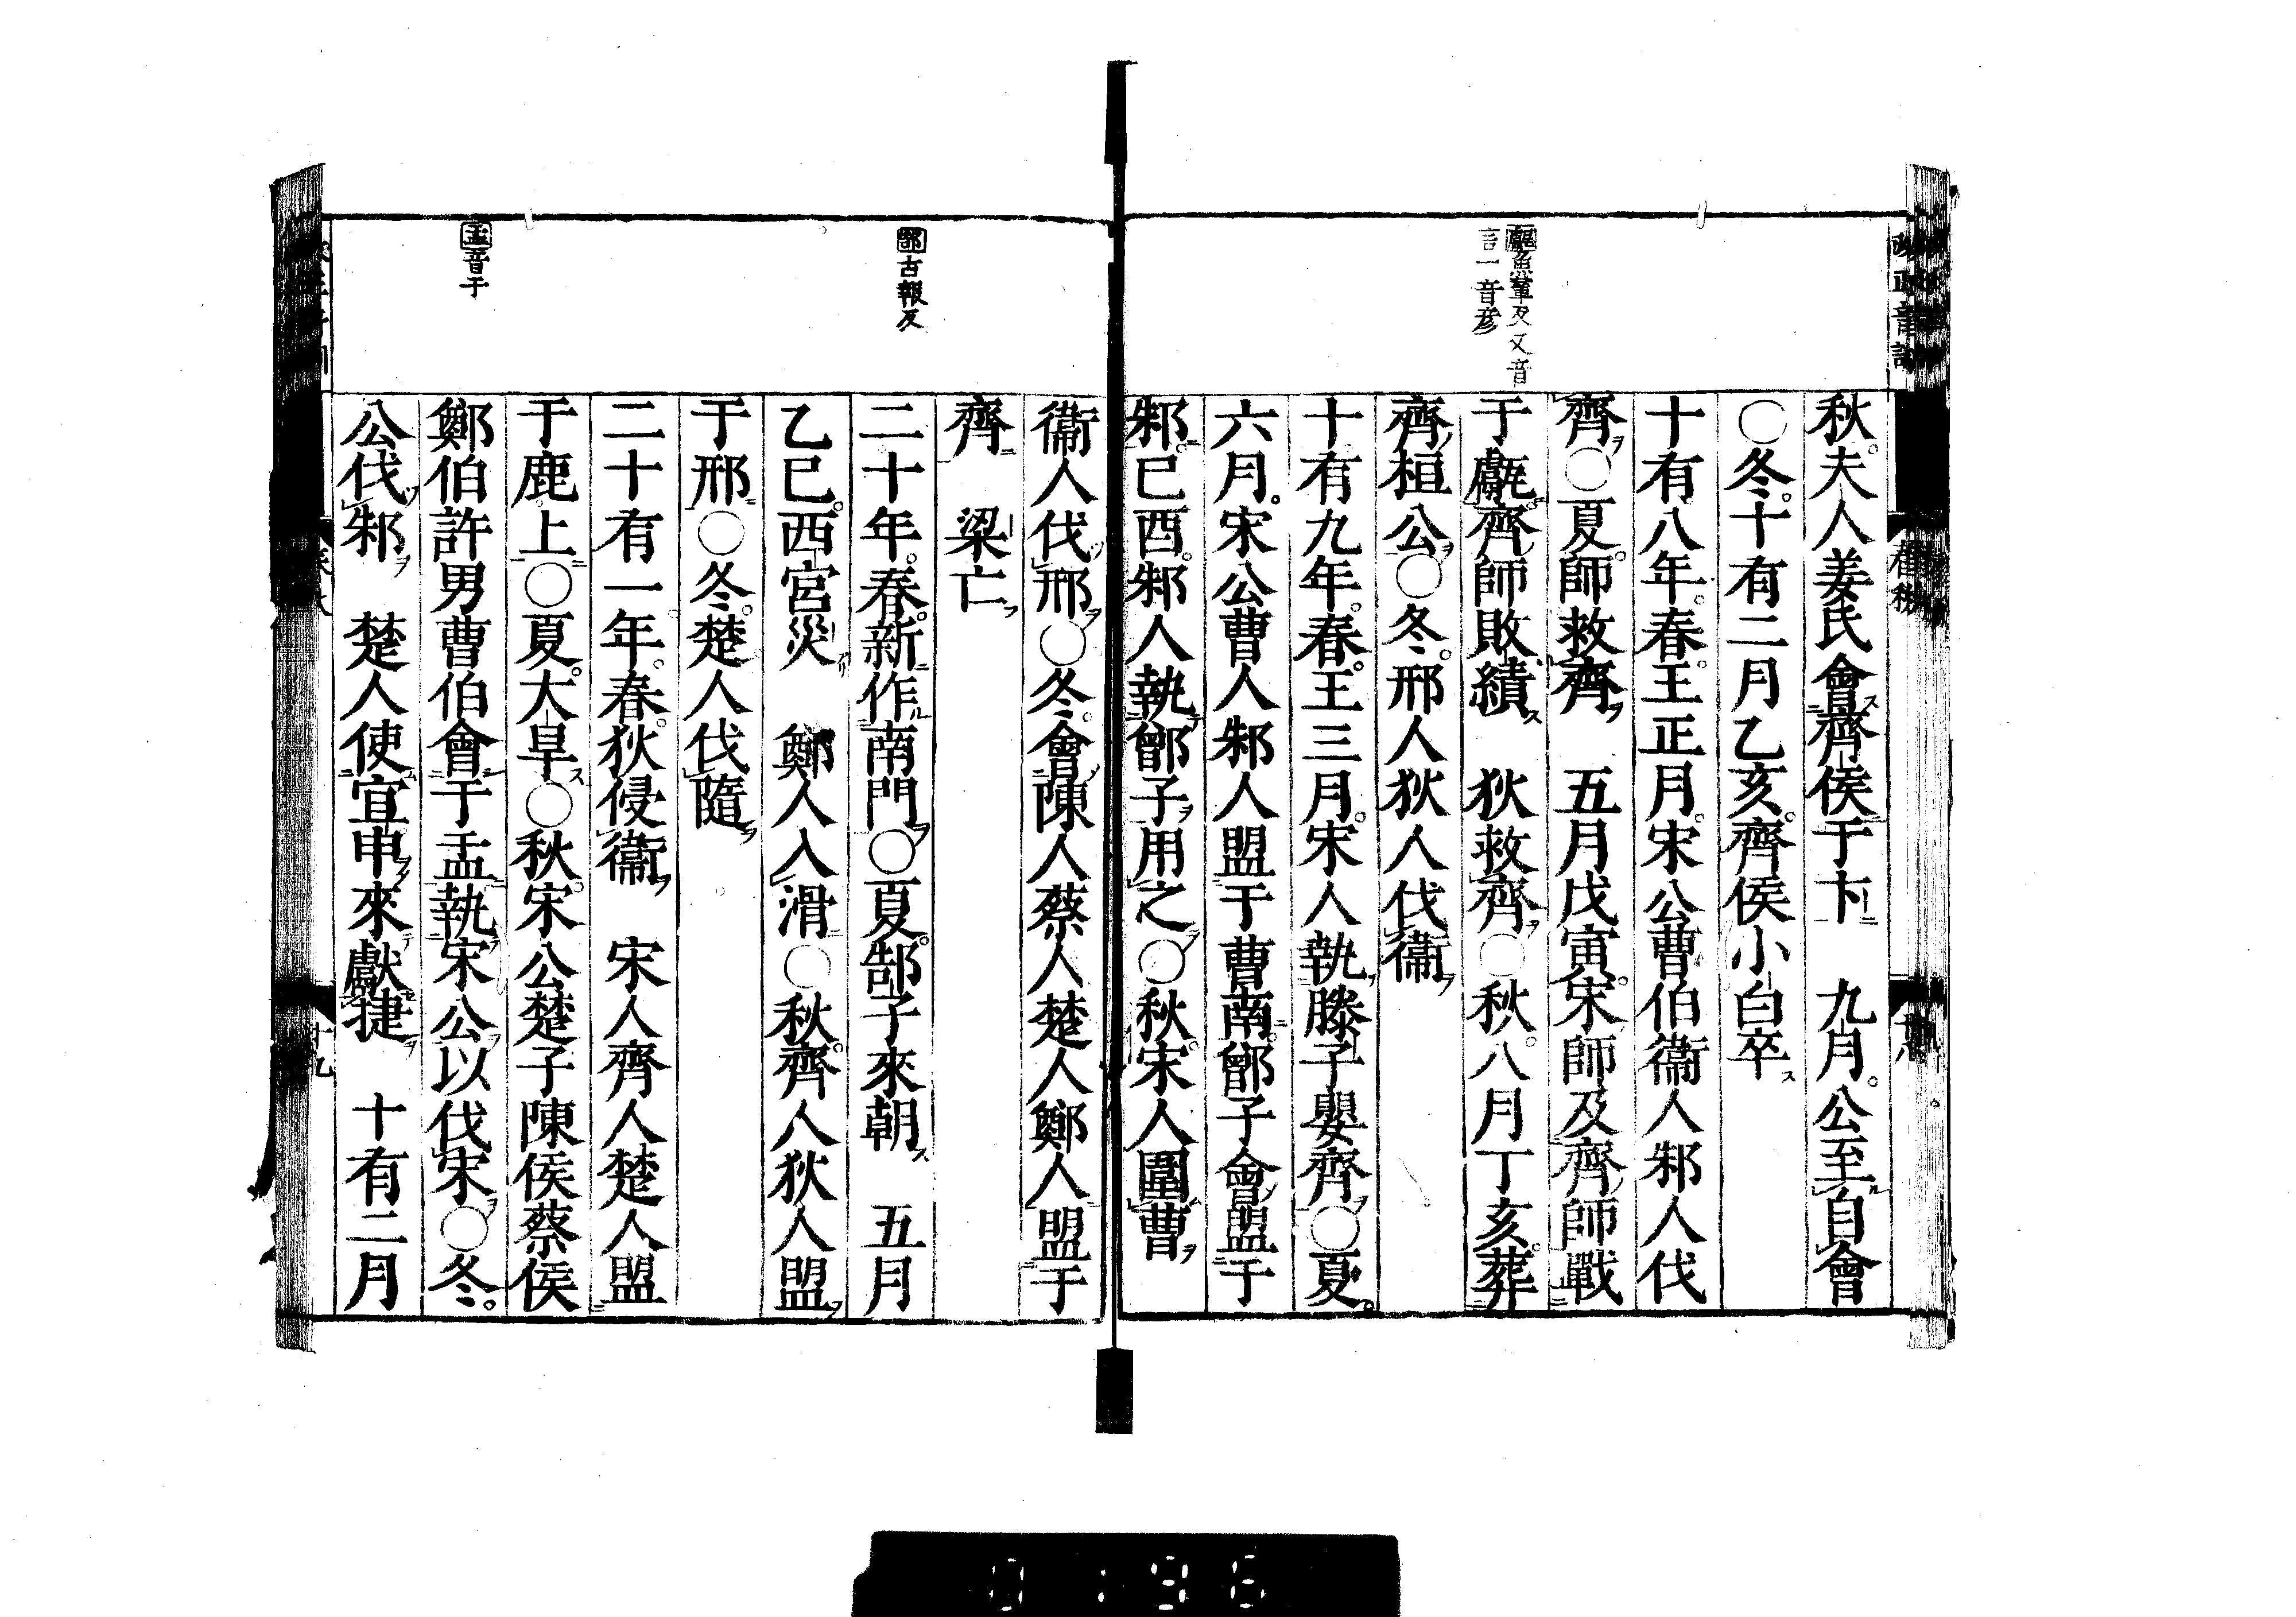 甗魚輦反又音
言一音彦
秋。夫人姜氏會齊侯于卞　九月。公至自會
○冬。十有二月乙亥。齊侯小白卒
十有八年。春。王正月。宋公曹伯衞人邾人伐
齊○夏。師救齊　五月戊寅。宋師及齊師戰
于甗。齊師敗績　狄救齊○秋。八月丁亥。葬
齊桓公○冬。邢人狄人伐衞
十有九年。春。王三月。宋人執滕子嬰齊○夏。
六月。宋公曹人邾人盟于曹南。鄫子會盟于
邾。已酉。邾人執鄫子用之○秋。宋人圍曹
郜古報反
盂音于
衞人伐邢○冬。會陳人蔡人楚人鄭人盟于
齊　梁亡
二十年。春。新作南門○夏。郜子來朝　五月
乙巳。西宮災　鄭人入滑○秋。齊人狄人盟
于邢○冬。楚人伐隨
二十有一年。春。狄侵衞　宋人齊人楚人盟
于鹿上○夏。大旱○秋。宋公楚子陳侯蔡侯
鄭伯許男曹伯會于盂。執宋公以伐宋○冬。
公伐邾　楚人使宜申來獻捷　十有二月
十九